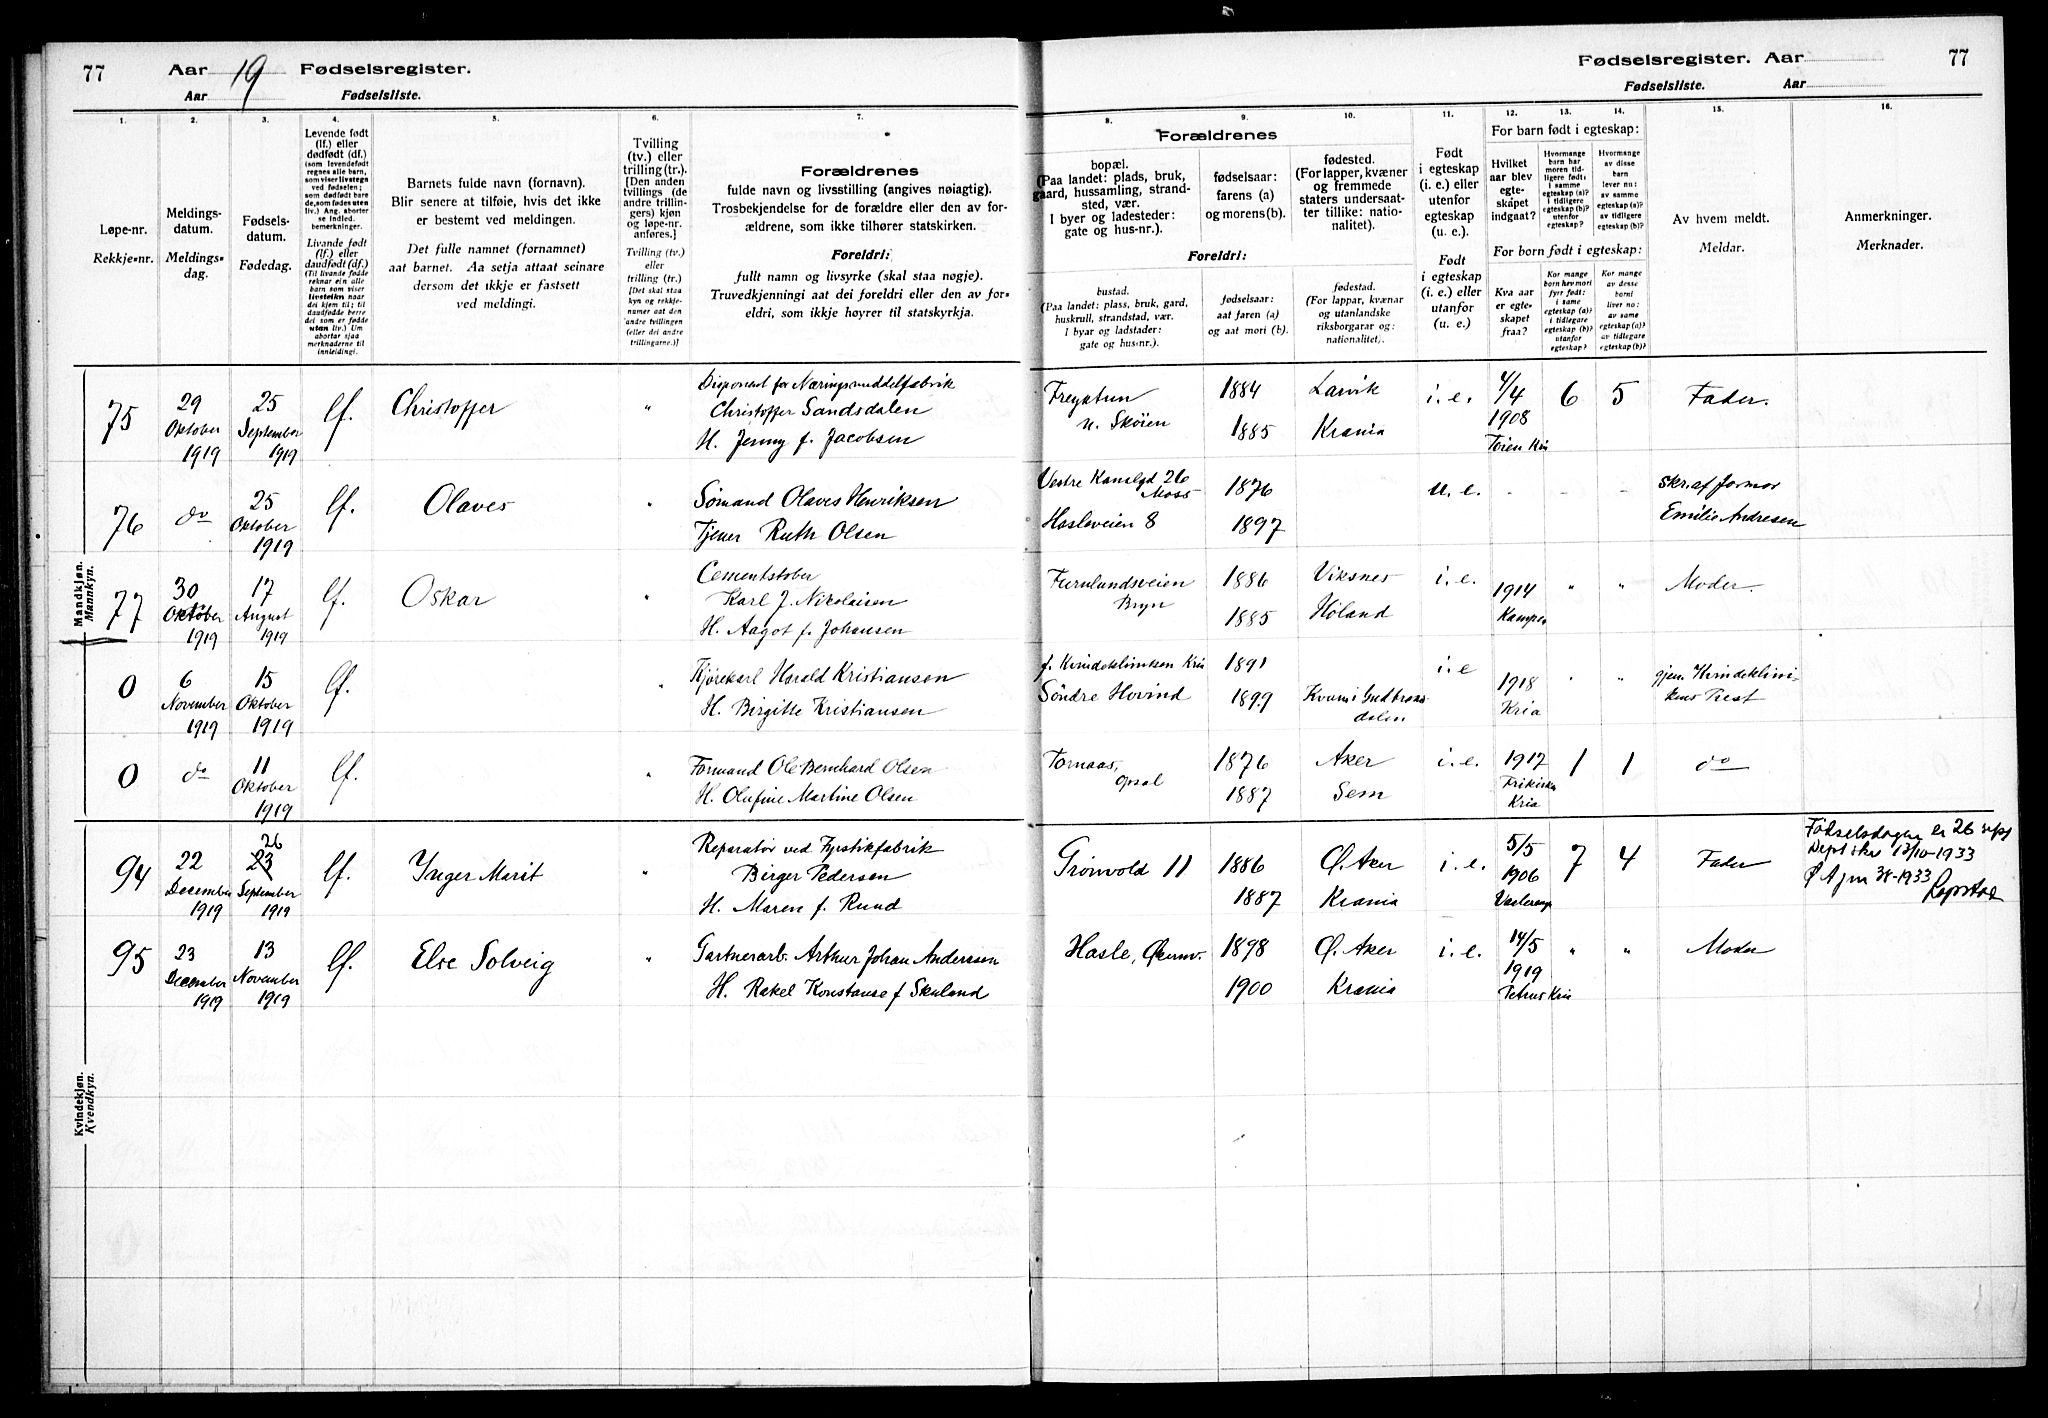 77 Aar 19 Fødselsregister.
Aar Fødselsliste.
Fødselsregister. Aar 77
Fødselsliste. Aar
1.
Løpe-nr.
Rekkje-nr.
2.
Meldings-
datum.
Meldings-
dag.
3.
Fødsels-
datum.
Fødedag.
4.
Levende født
(lf.) eller
dødfødt (df.)
(som levendefødt
regnes alle barn,
som viser livstegn
ved fødselen;
som dødfødt bare
de, som fødes uten
liv.) Ang. aborter
se indled.
bemerkninger.
Livande født
(lf.) eller
daudfødt (df.)
(Til livande fødde
reknar ein alle
barn som viser
livsteikn naar
dei kjem til; til
daudfødde berre
dei som er fødde
utan liv.) Um
abortar sjaa
merknaderne til
innleidingi.
5.
Barnets fulde navn (fornavn).
Blir senere at tilføie, hvis det ikke
er bestemt ved meldingen.
Det fulle namnet (fornamnet)
aat barnet. Aa setja attaat seinare
dersom det ikkje er fastsett
ved meldingi.
6.
Tvilling
(tv.) eller
trilling (tr.).
[Den anden
tvillings (de
andre trillin-
gers) kjøn
og løpe-nr.
anføres.]
Tvilling (tv.)
eller
trilling (tr.)
[Det skal staa
kyn og rekkje-
numer aat den
andre tvillingen
(eller dei andre
trillingarne.)]
7.
Forældrenes
fulde navn og livsstilling (angives nøiagtig).
Trosbekjendelse for de forældre eller den av for-
ældrene, som ikke tilhører statskirken.
Foreldri:
fullt namn og livsyrke (skal staa nøgje).
Truvedkjenningi aat dei foreldri eller den av for-
eldri, som ikkje høyrer til statskyrkja.
Forældrenes
8.
bopæl.
(Paa landet: plads, bruk,
gaard, hussamling, strand-
sted, vær.
I byer og ladesteder:
gate og hus-nr.).
9.
fødselsaar:
farens (a)
og morens (b).
10.
fødested.
(For lapper, kvæner
og fremmede
staters undersaat-
ter tillike: natio-
nalitet).
Foreldri:
bustad.
(Paa landet: plass, bruk, gard,
huskrull, strandstad, vær.
I byar og ladstader:
gate og hus-nr.).
fødselsaar:
aat faren (a)
og aat mori (b).
fødestad.
(For lappar, kvænar
og utanlandske
riksborgarar og:
nationalitet).
11.
Født
i egteskap
(i. e.) eller
utenfor
egteskap
(u. e.).
Født
i egteskap
(i. e.) eller
utanfor
(u. e.)
For barn født i egteskap:
12.
Hvilket
aar blev
egte-
skapet
indgaat?
13.
Hvormange
barn har
moren tid-
ligere født:
i samme
egteskap (a)?
i tidligere
egteskap (b)?
utenfor
egteskap?
14.
Hvormange
av disse
barn
lever nu:
av samme
egteskap (a)?
av tidligere
egteskap (b)?
For born født i egteskap:
Kva aar
er egte-
skapet
fraa?
Kor mange
born hev mori
fyrr født:
i same
egteskap (a)?
i tidlegare
egteskap (b)?
utanfor
egteskap?
Kor mange
av desse
borni
liver no:
av same
egteskap (a)?
av tidlegare
egteskap (b)?
15.
Av hvem meldt.
Meldar.
16.
Anmerkninger.
Merknader.
Mandkjøn.
Mannkyn.
75 29 Oktober 1919 25 September 1919 lf. Christoffer " Disponent for Næringsmiddelfabrik
Christoffer Sandsdalen
H. Jenny f. Jacobsen
n. Skøien 1884 Larvik i.e. 4/4 1908 6 5 Fader.
1885 Krania Tøien Kria
76 do 25 Oktober 1919 lf. Olaves " Sømand Olaves Henriksen
Tjener Ruth Olsen
Vestre Kanalgd 26 Moss 1876 u.e. - - - skr. af Jormor
Hasleveien 8 1897 Emilie Andresen
77 30 Oktober 1919 17 August 1919 lf. Oskar " Cementstøber
Karl J. Nikolaisen
H. Aagot f. Johansen
Furulundsveien 1886 Viksnes i.e. 1914 " " Moder.
Bryn 1885 Høland Kampen
0 6 November 1919 15 Oktober 1919 lf. " Kjørekarl Harald Kristiansen
H. Birgitte Kristiansen
f. Kvindeklinikken Kria 1891 i.e 1918 " " gjen. Kvindeklini-
Søndre Hovind 1899 Kvam i Gudbrans- Kria kens Prest
dalen
0 do 11 Oktober 1919 lf. " Formand Ole Bernhard Olsen
H. Olufine Martine Olsen
Tornaas, 1876 Aker i.e. 1917 1 1 do
Opsal 1887 Sem Kria
94 22 December 1919 26 23 September 1919 lf. Inger Marit " Reparatør ved Fyrstikfabrik
Birger Pedersen
H. Maren f. Ruud
Grønvold 11 1886 Ø. Aker i.e. 5/5 1906 7 4 Fader
1887 Krania Vaalerenge
Fødselsdagen er 26 sept
Dept skr 13/10-1933
95 23 December 1919 13 November 1919 lf. Else Solveig " Gartnerarb. Arthur Johan Anderssen
H. Rakel Konstanse f Skuland
Hasle, Økernv. 1898 Ø. Aker i.e. 14/5 1919 " " Moder
1900 Krania Petrus Kria
Kvindekjøn.
Kvendkyn.